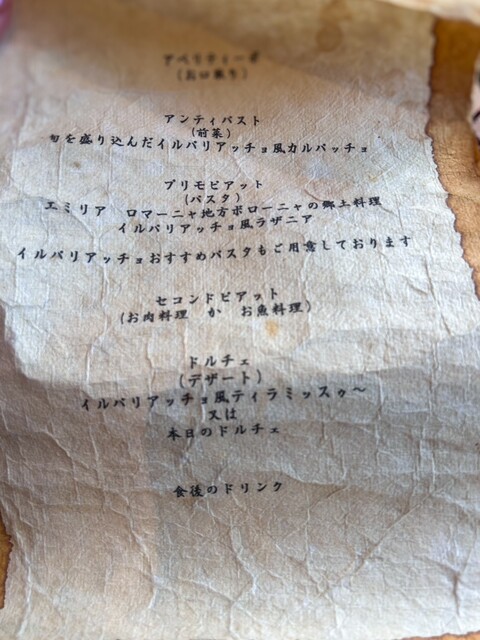 アペリティーボ
(お口取り)
アンティパスト
(前菜)
旬を盛り込んだイルパリアッチョ風カルパッチョ
プリモピアット
(パスタ)
エミリア ロマーニャ地方ボローニャの郷土料理
イルパリアッチョ風ラザニア
イルパリアッチョおすすめパスタもご用意しております
セコンドピアット
(お肉料理 か お魚料理)
ドルチェ
(デザート)
イルパリアッチョ風ティラミッスゥ～
又は
本日のドルチェ
食後のドリンク